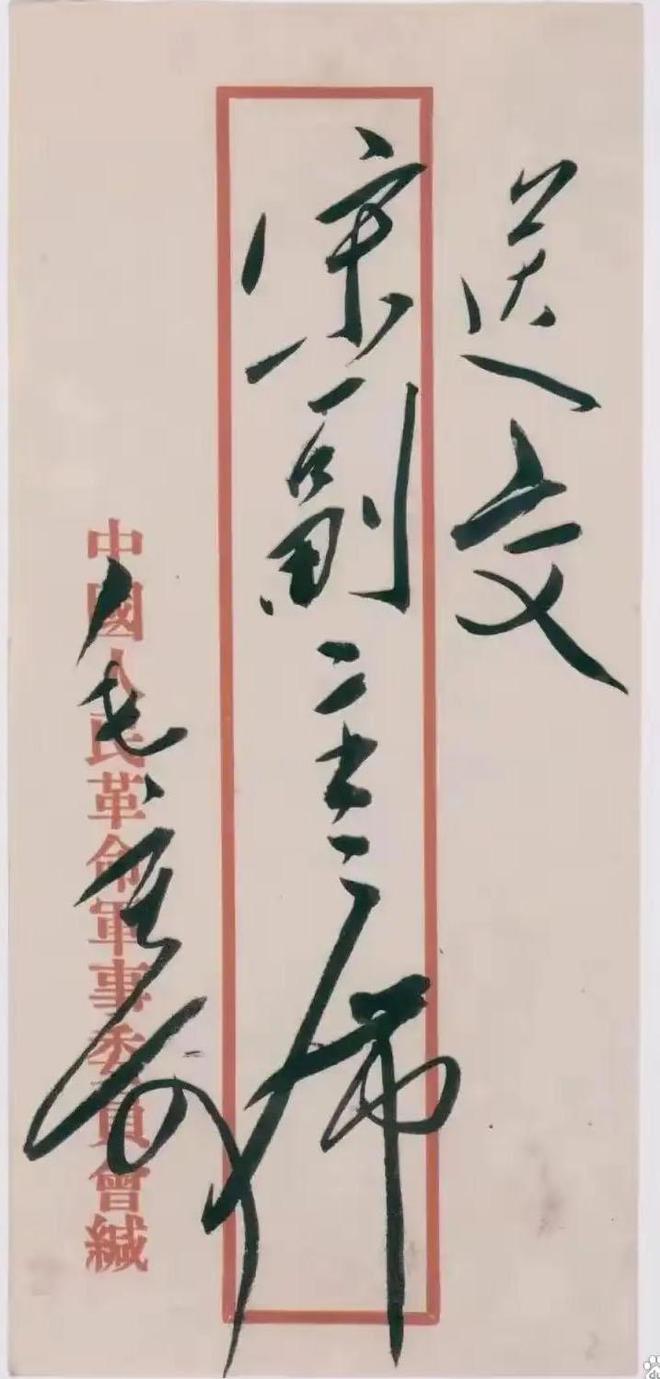 送交
宋副主席
毛寄
中國人民革命軍事委員會緘